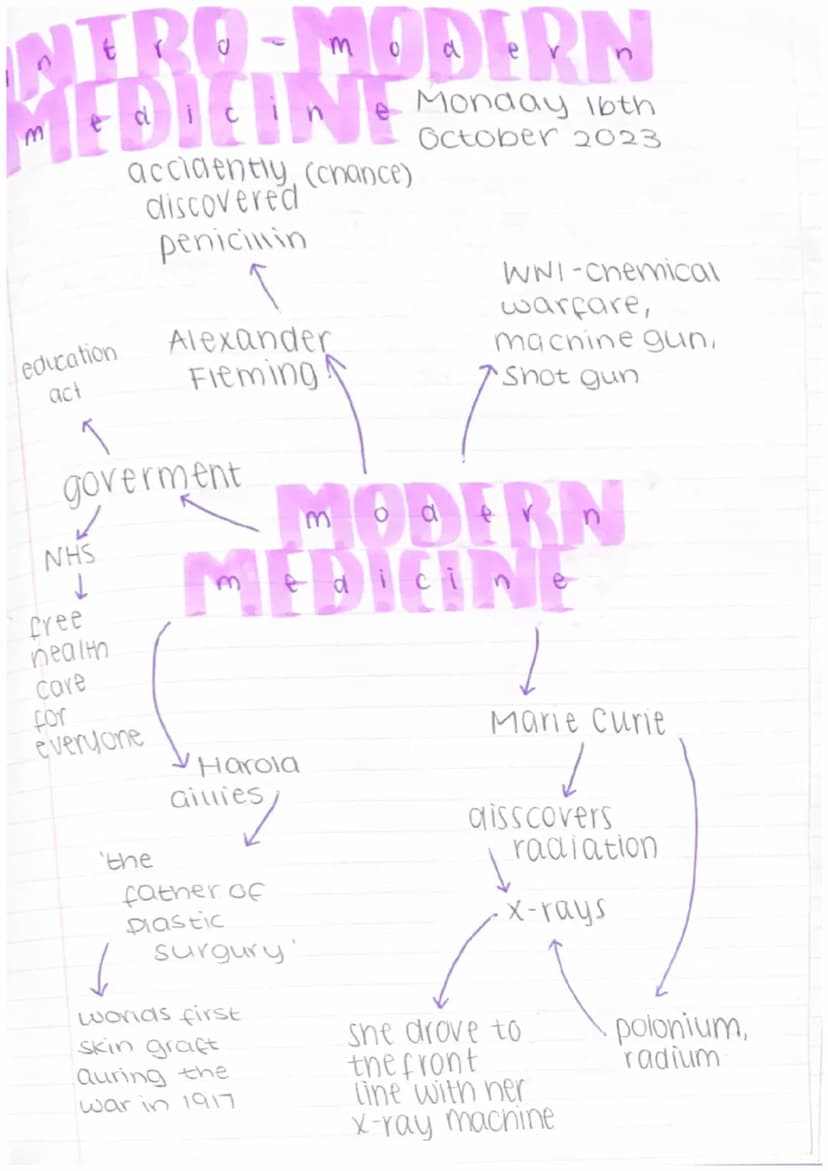 INTRO-MODERN
MEDICINE
Monday 16th
October 2023
accidently (chance)
discovered
penicillin
Alexander
Fleming
WW1-chemical
warfare,
machine gun,
shot gun
education
act
goverment
NHS
free
health
care
for
everyone
MODERN
MEDICINE
Harold
Gillies
'the
father of
plastic
surgury'
worlds first
skin graft
during the
war in 1917
Marie Curie
disscovers
radiation
x-rays
polonium,
radium
she drove to
the front
line with her
x-ray machine